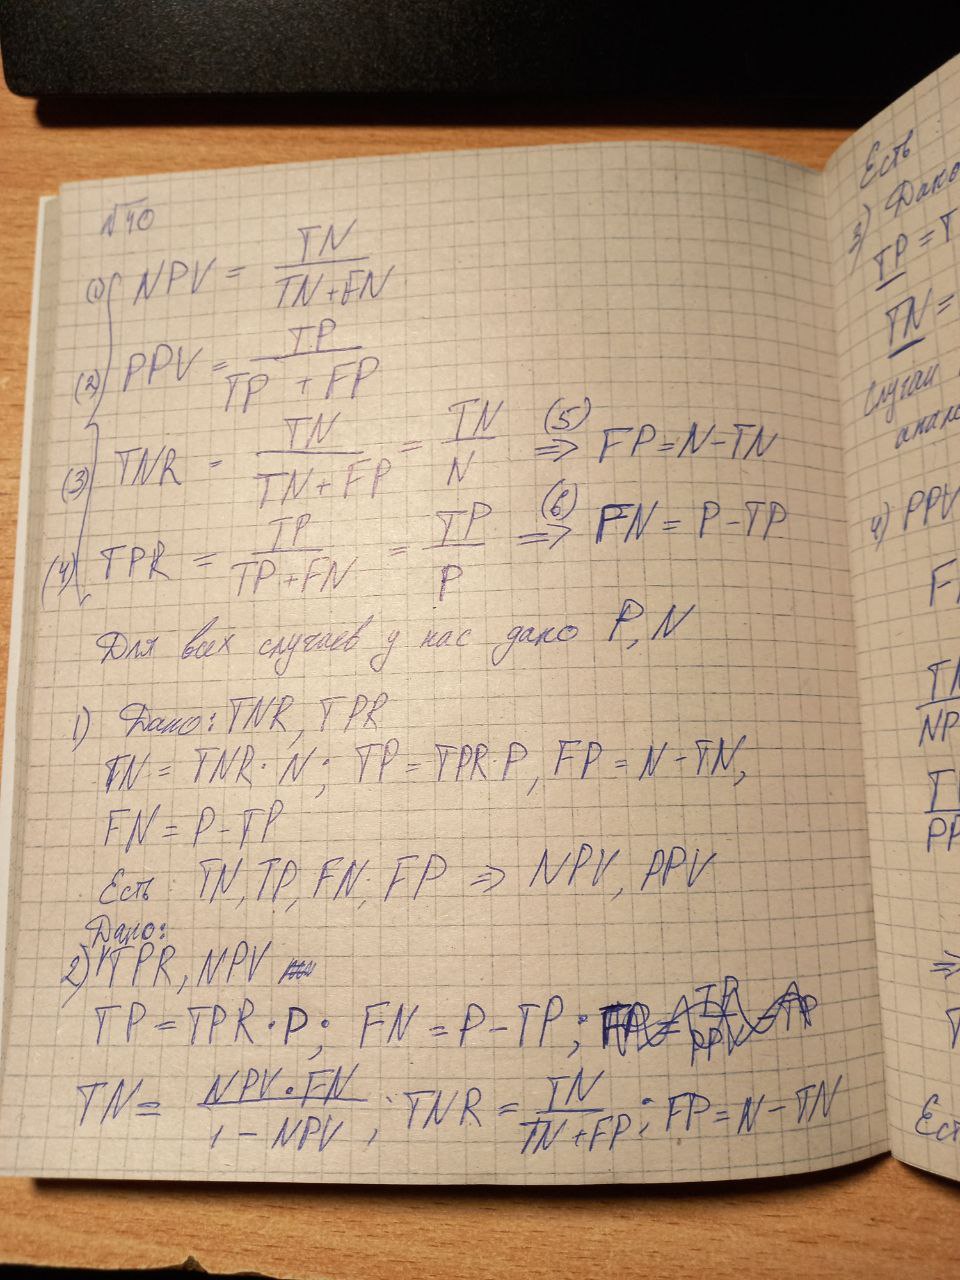 √40
(1) NPV = TN / (TN+FN)
(2) PPV = TP / (TP + FP)
(3) TNR = TN / (TN+FP) = TN / N (5) ⇒ FP = N-TN
(4) TPR = TP / (TP+FN) = TP / P (6) ⇒ FN = P-TP
Для всех случаев у нас дано P, N
1) Дано: TNR, TPR
TN = TNR · N; TP = TPR·P, FP = N-TN,
FN = P-TP
Есть TN, TP, FN, FP ⇒ NPV, PPV
Дано:
2) TPR, NPV
TP = TPR·P; FN = P-TP;
TN = NPV·FN / (1-NPV); TNR = TN / (TN+FP); FP = N-TN
Есть
3) Дано
TP = T
TN =
Случаи
анало
4) PPV
F
TN
NP
T
PP
⇒
T
Ест